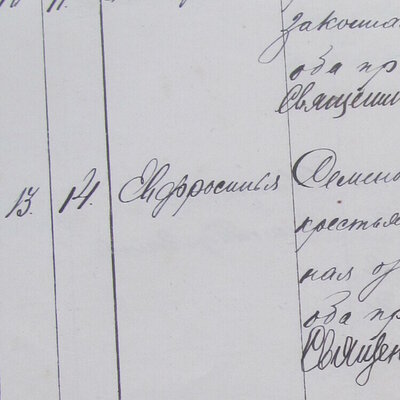 законна
оба пр
Священни
13. 14. Евфросинья Демен
крестья
ная
оба пр
Священ